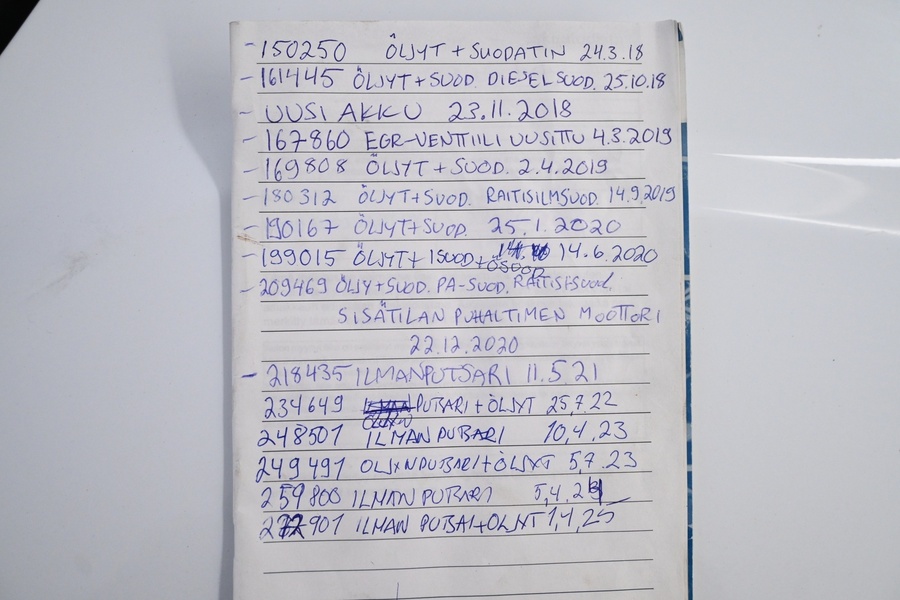 - 150250 ÖLJYT + SUODATIN 24.3.18
- 161445 ÖLJYT + SUOD. DIESELSUOD. 25.10.18
- UUSI AKKU 23.11.2018
- 167860 EGR-VENTTIILI UUSITTU 4.3.2019
- 169808 ÖLJYT + SUOD. 2.4.2019
- 180312 ÖLJYT + SUOD. RAITISILMSUOD. 14.9.2019
- 190167 ÖLJYT+SUOD. 25.1.2020
- 199015 ÖLJYT + ISUOD + ÖSUOD 14.6.2020
- 209469 ÖLJY+SUOD. PA-SUOD. RAITISISUOD.
SISÄTILAN PUHALTIMEN MOOTTORI
22.12.2020
- 218435 ILMANPUTSARI 11.5.21
234649 PUTSARI + ÖLJYT 25.7.22
248501 ILMAN PUTSARI 10,4,23
249491 PUTSARI+ÖLJYT 5,7.23
259800 ILMAN PUTSARI 5,4.24
272901 ILMAN PUTSAI+OLJYT 1,4,25